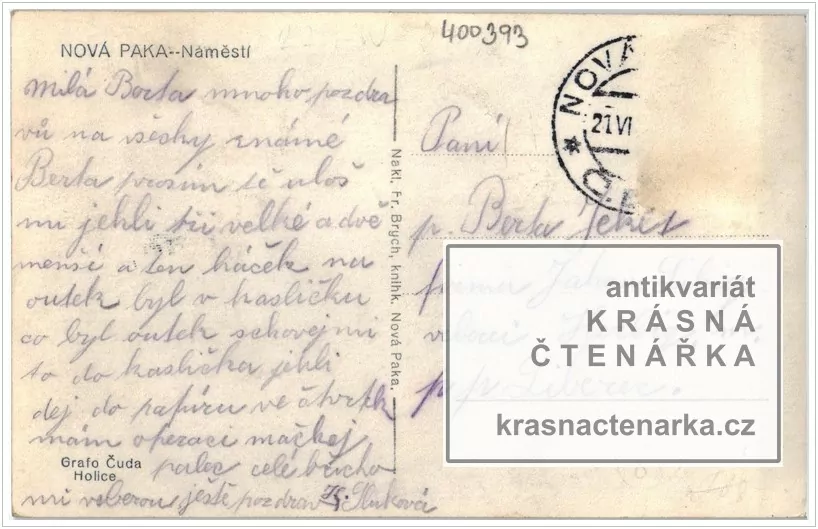 400393
NOVÁ PAKA--Náměstí
milá Berta mnoho pozdra
vů na všéky známé
Berta prosim tě uloš
mi jehli tři velké a dvě
menší a ten háček na
outek byl v kasličku
co byl outek schovej mi
to do kaslička jehli
dej do papíru ve čtvrtek
mám operaci mačkej
palec celé břicho
mi veberou ještě pozdrav
Grafo Čuda
Holice
Nakl. Fr. Brych, knihk. Nová Paka.
NOVÁ
21 VI
Paní
p. Berta
firma
p. p. Liberec.
antikvariát
KRÁSNÁ
ČTENÁŘKA
krasnactenarka.cz